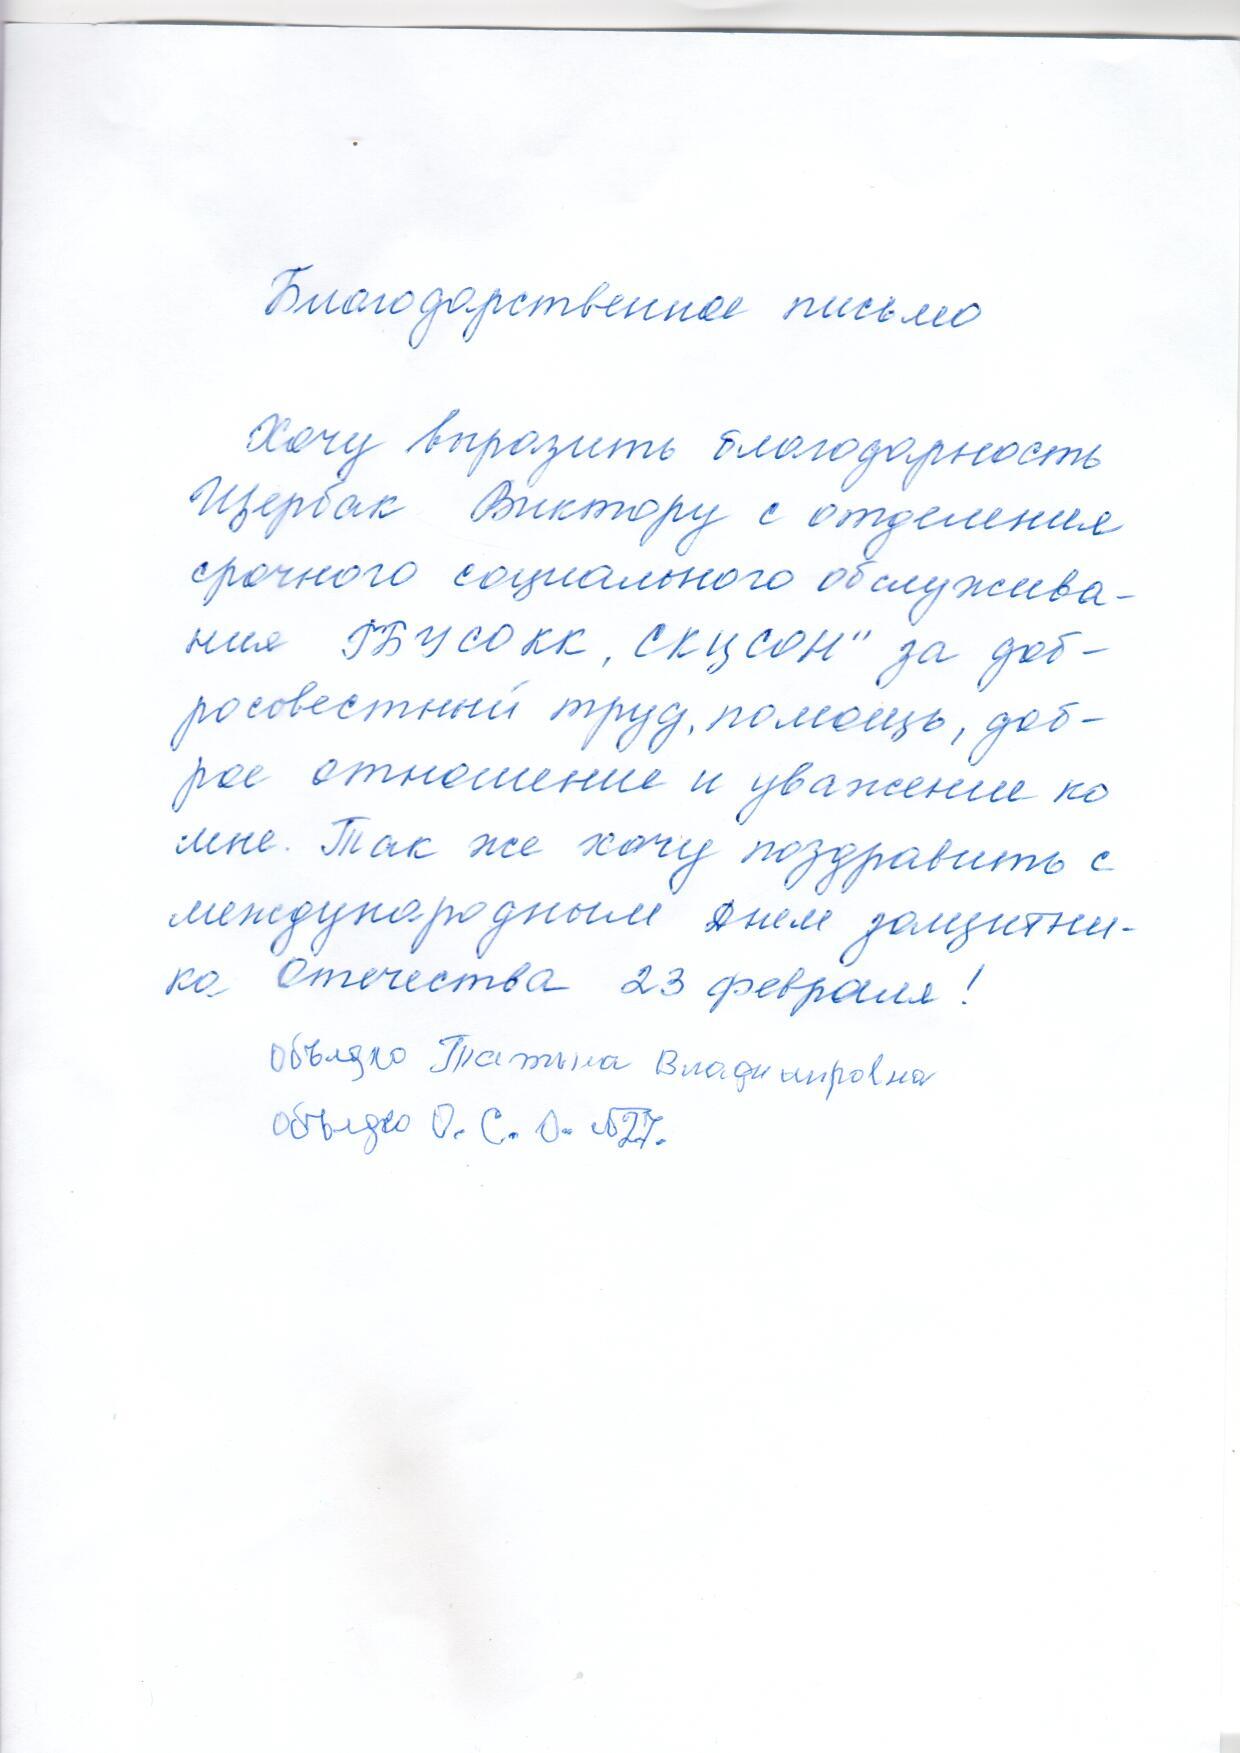 Благодарственное письмо
Хочу выразить благодарность
Щербак Виктору с отделения
срочного социального обслужива-
ния ГБУСОКК „СКЦСОН" за доб-
росовестный труд, помощь, доб-
рое отношение и уважение ко
мне. Так же хочу поздравить с
международным Днем защитни-
ка Отечества 23 февраля!
Татьяна Владимировна
О. С. О. №27.